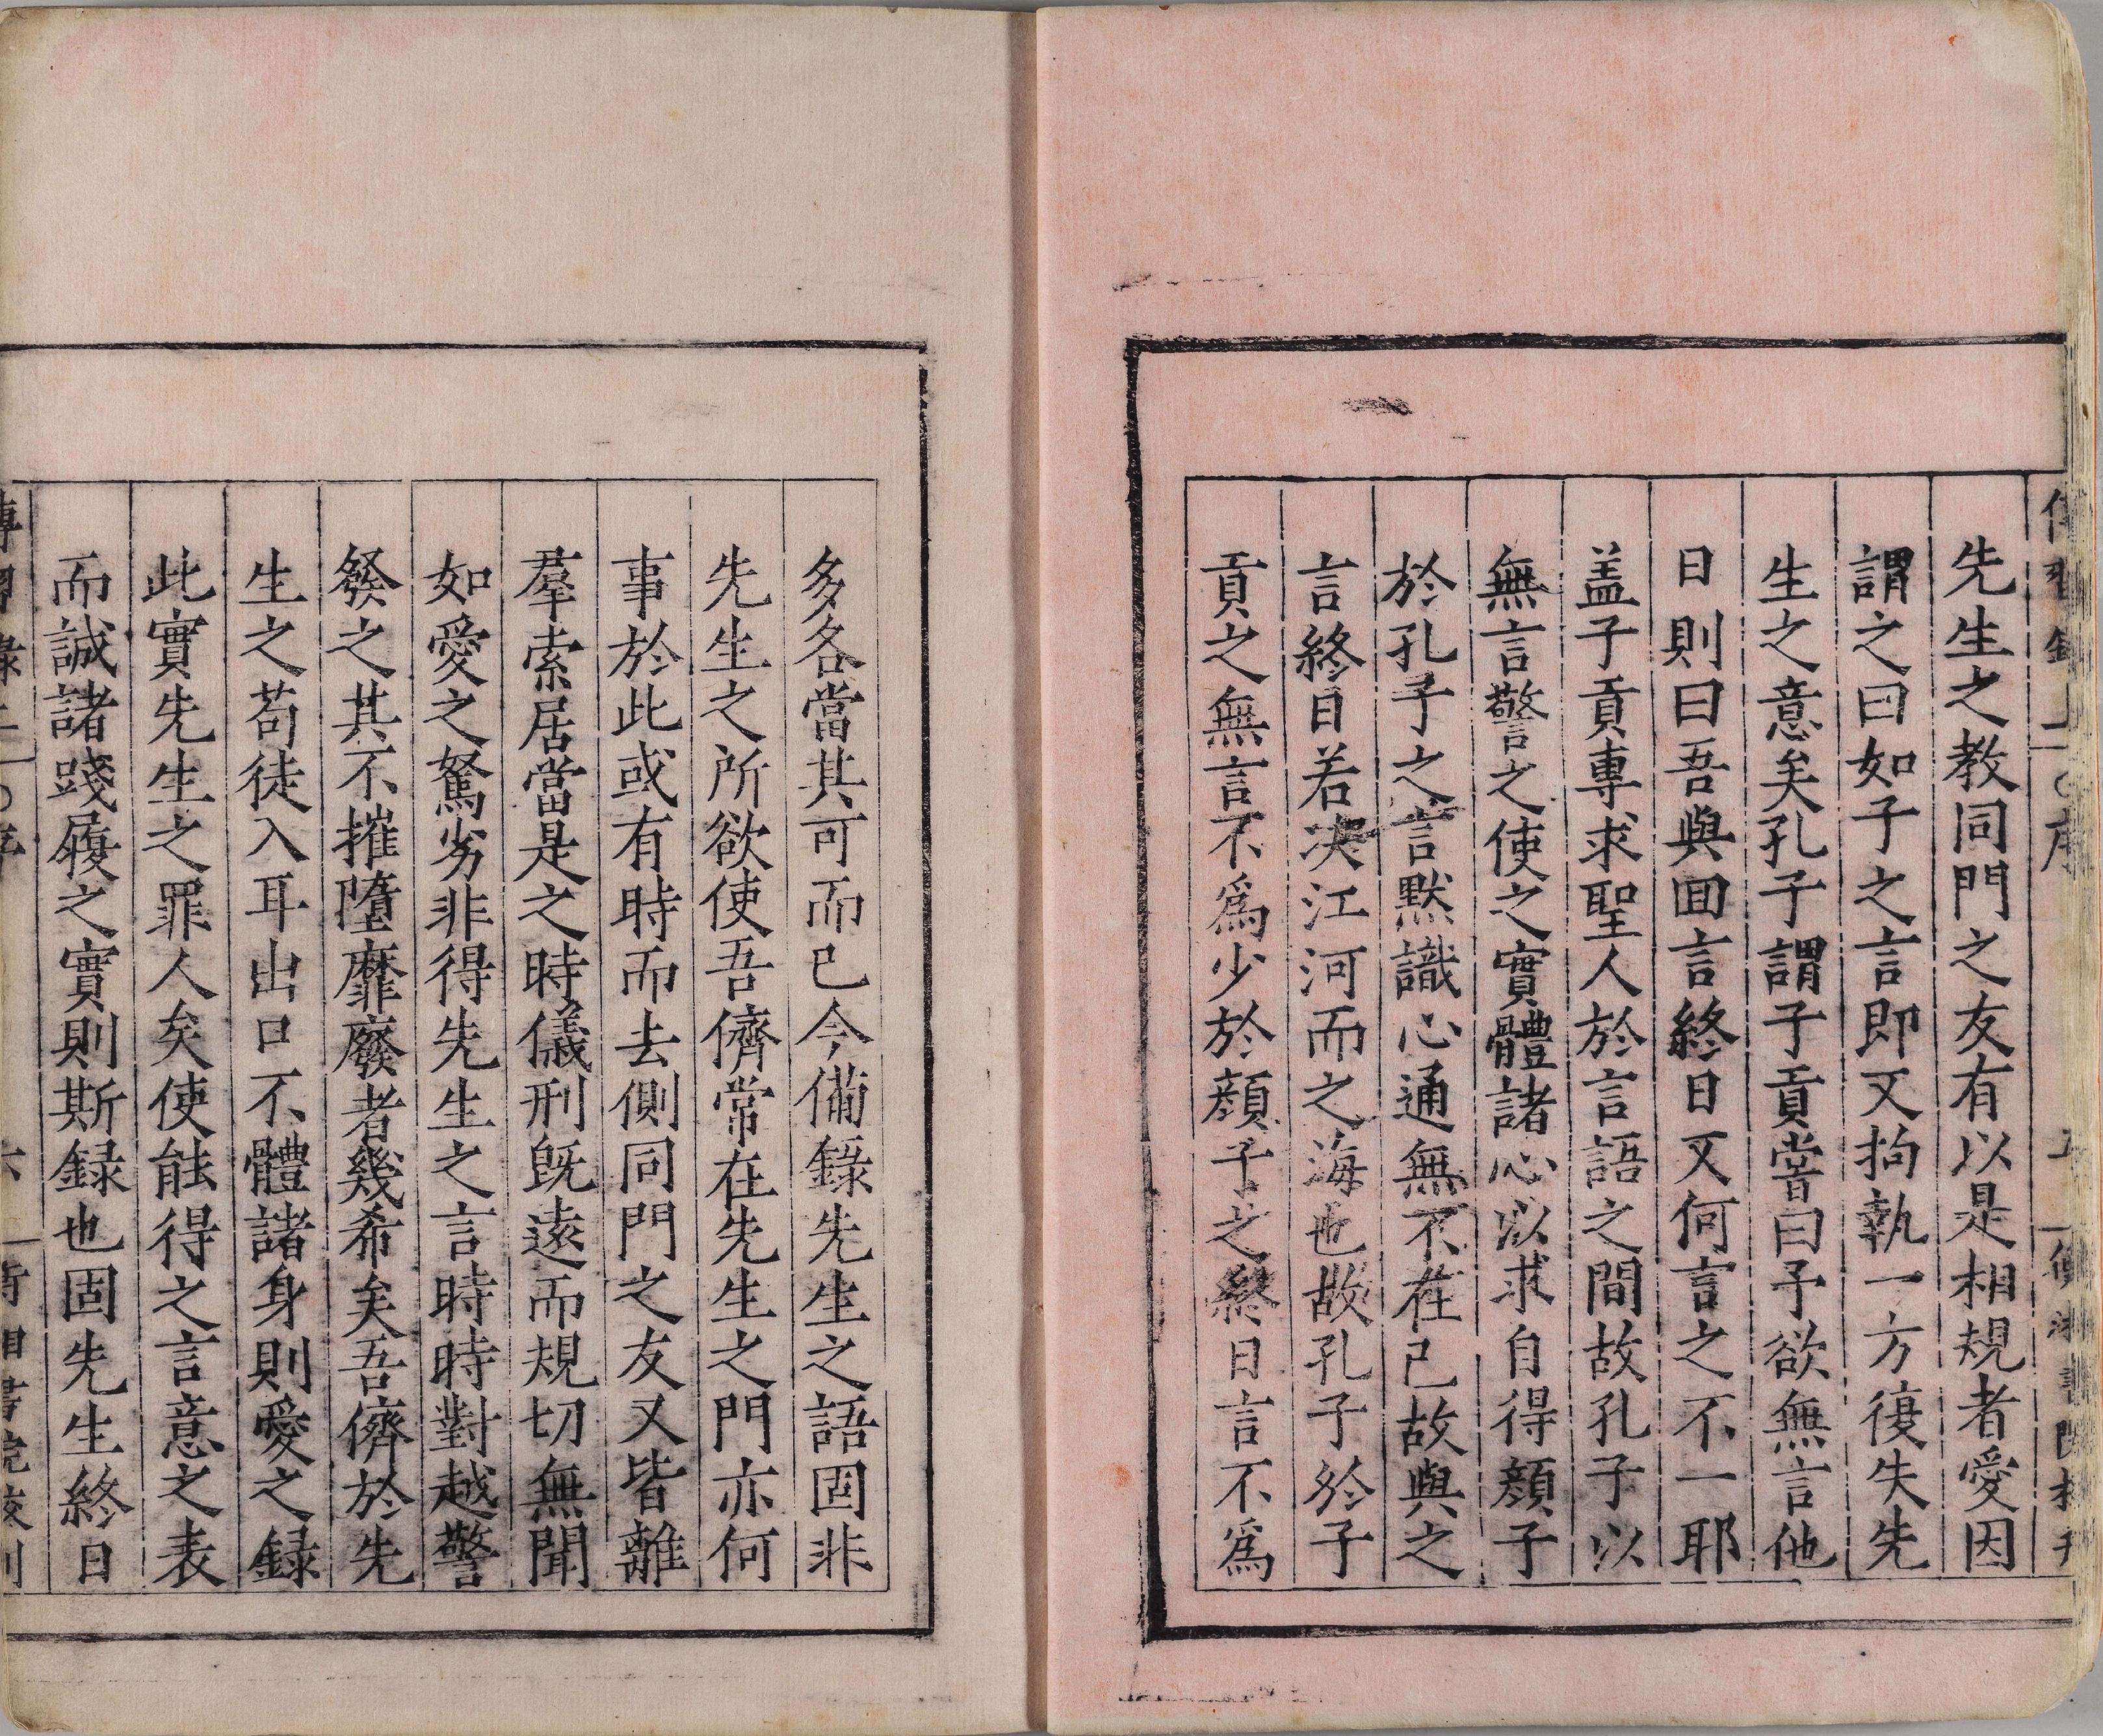 先生之教同門之友有以是相規者愛因
謂之曰如子之言即又拘執一方復失先
生之意矣孔子謂子貢嘗曰予欲無言他
日則曰吾與囬言終日又何言之不一耶
盖子貢專求聖人於言語之間故孔子以
無言警之使之實體諸心以求自得顔子
於孔子之言黙識心通無不在己故與之
言終日若决江河而之海也故孔子於子
貢之無言不爲少於顔子之終日言不爲
多各當其可而已今備錄先生之語固非
先生之所欲使吾儕常在先生之門亦何
事於此或有時而去側同門之友又皆離
羣索居當是之時儀刑旣遠而規切無聞
如愛之駑劣非得先生之言時時對越警
發之其不摧墮靡廢者幾希矣吾儕於先
生之言茍徒入耳出口不體諸身則愛之録
此實先生之罪人矣使能得之言意之表
而誠諸踐履之實則斯録也固先生終日